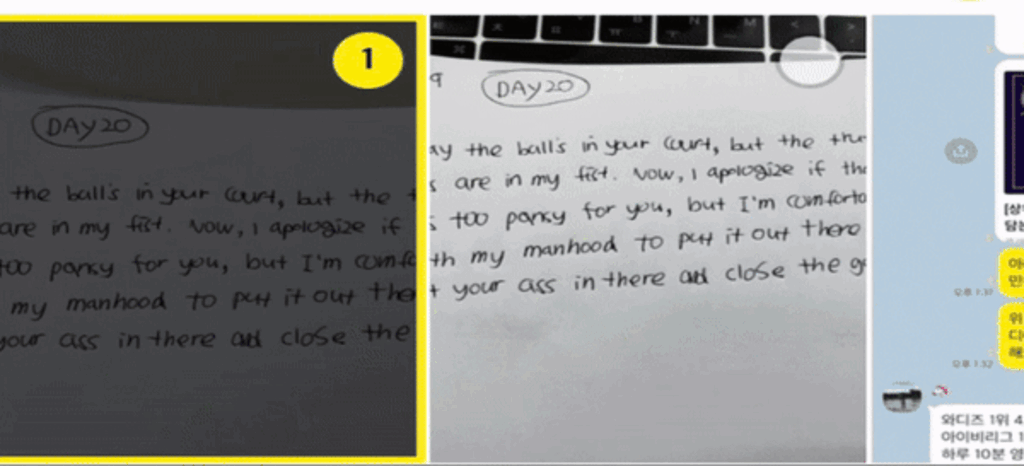 1
DAY20
the ball's in your court, but the
are in my fist. Now, I apologize if
too pansy for you, but I'm comfo
my manhood to put it out the
your ass in there and close the
B N M < >
9
DAY20
ay the ball's in your court, but the thr
s are in my fist. Now, I apologize if the
s too pansy for you, but I'm comforta
th my manhood to put it out there
t your ass in there and close the ga
[상
담
아
만
위
디
해
오후 1:32
와디즈 1위 4
아이비리그 1
하루 10분 영